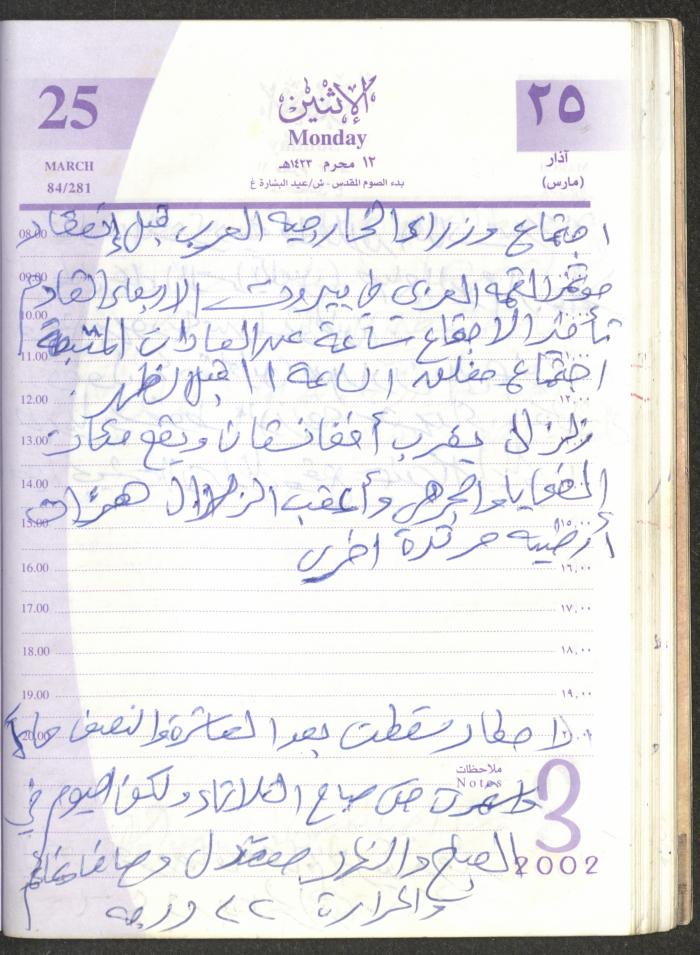 25
الإثنين
٢٥
Monday
MARCH
١٢ محرم ١٤٢٣هـ
آذار
84/281
بدء الصوم المقدس - ش/عيد البشارة غ
(مارس)
08.00
اجتماع وزراء الخارجية العرب قبل إنعقاد
09.00
مؤتمر القمة العربي في بيروت الاربعاء القادم
10.00
تأخر الاجتماع ساعة عن العادات المتبعة
11.00
اجتماع مغلق الساعة ١١ قبل الظهر
12.00
١٢,٠٠
زلزال يضرب أفغانستان ويقع مئات
13.00
14.00
الضحايا والجرحى وأعقب الزلزال هزات
15.00
١٥,٠٠
أرضية مرتدة اخرى
16.00
١٦,٠٠
17.00
١٧,٠٠
18.00
١٨,٠٠
19.00
١٩,٠٠
20.00
الامطار سقطت بعد العاشرة والنصف
ملاحظات
Notes
3
من صباح الثلاثاء ولكن اليوم في
2002
الصباح والنهار معتدل
والحرارة ٢٢ درجه